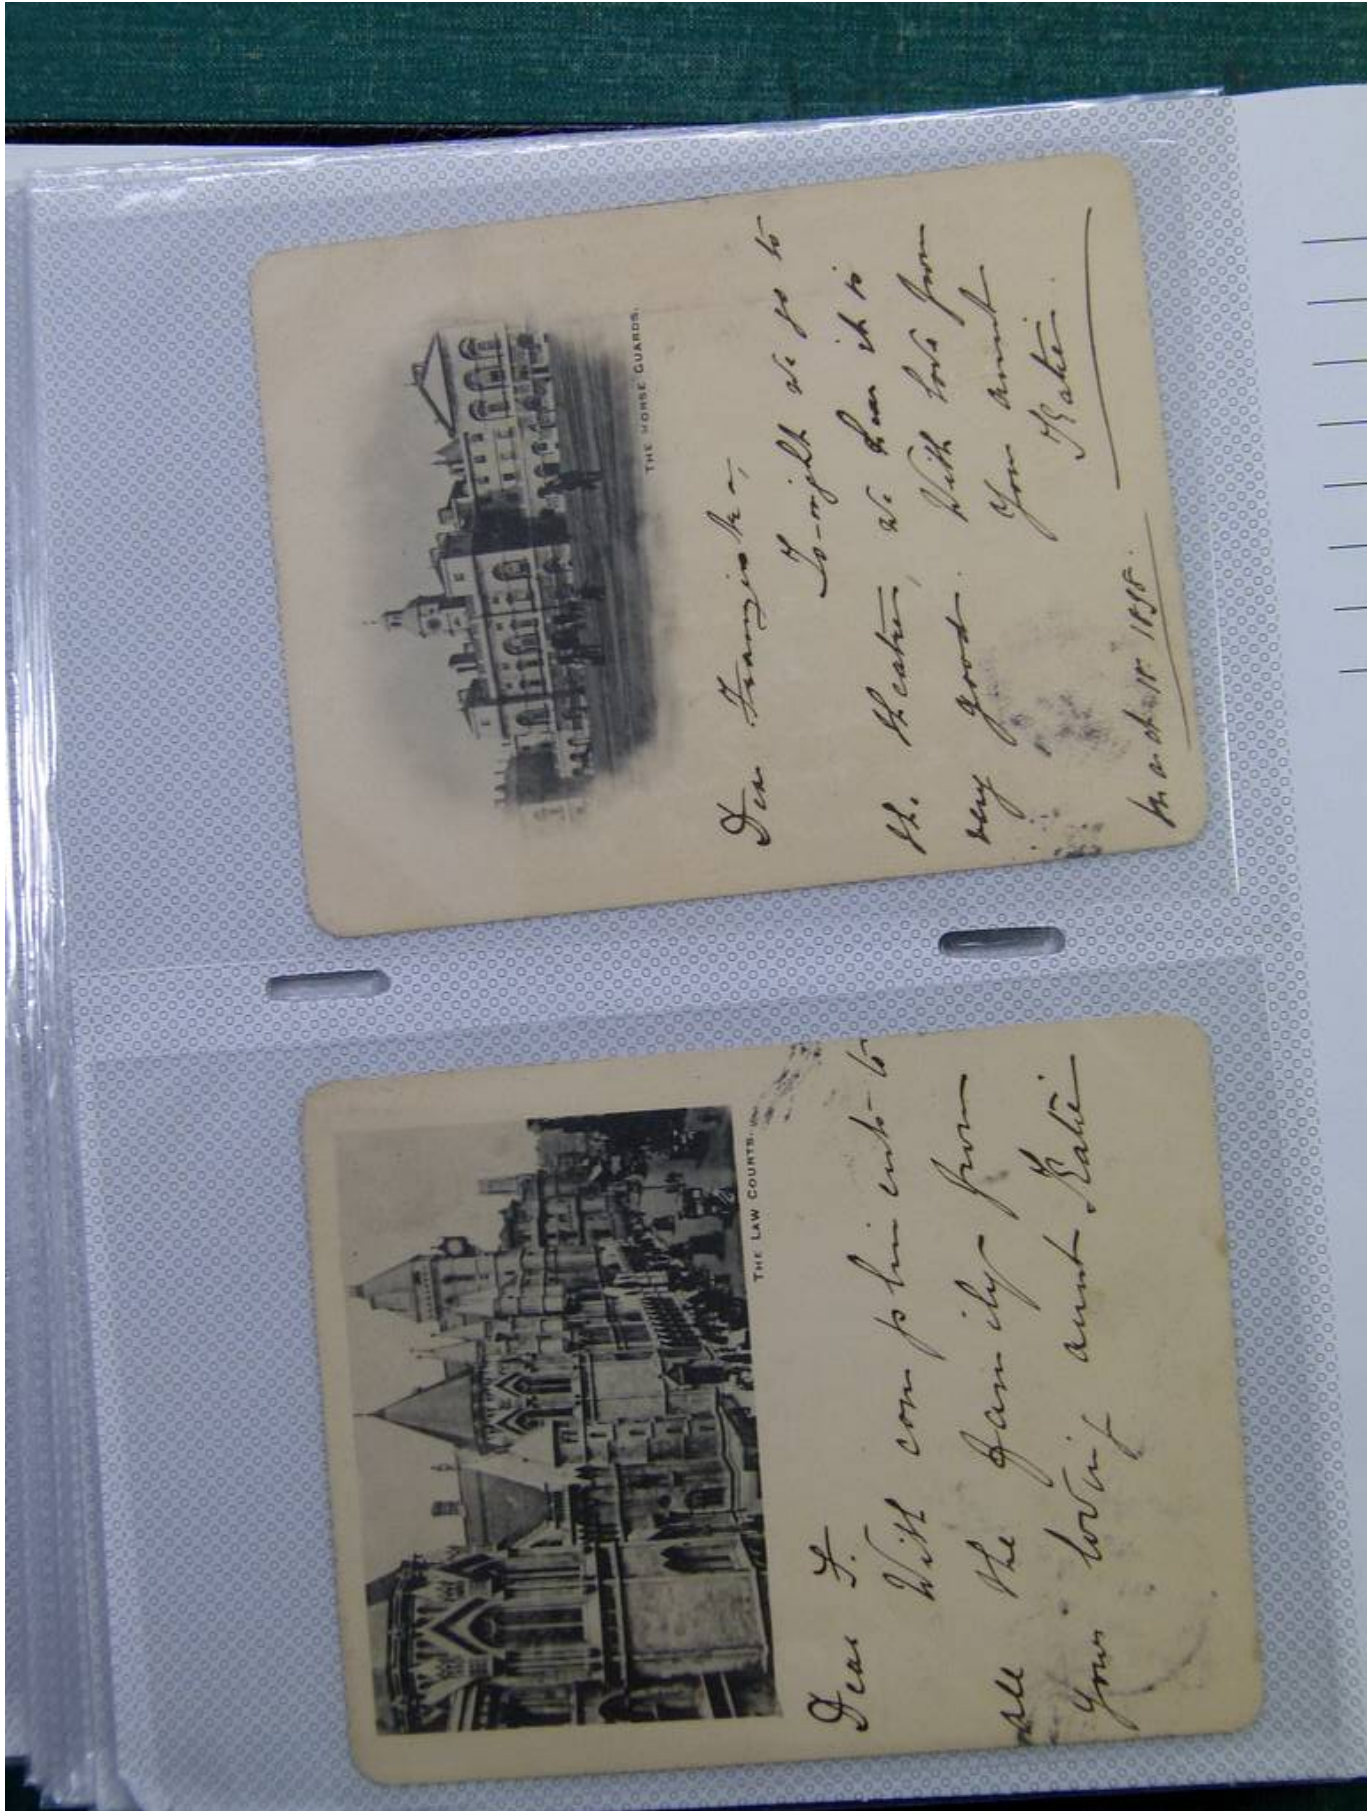 THE HORSE GUARDS.
Dear Franziska,
To-night we go to
the theatre, we hear it is
very good. With love from
Your aunt
Katie.
March 1898.
THE LAW COURTS.
Dear F.
With compliments to
all the family from
Your loving aunt Katie